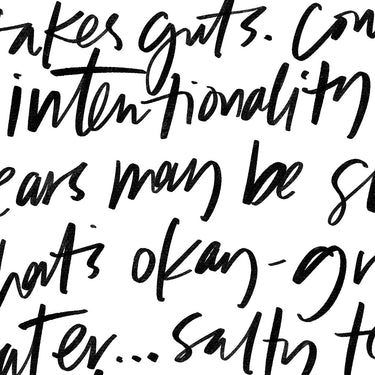 akes guts. Con
intentionality
ears may be s
hat's okay-gr
ater... salty t